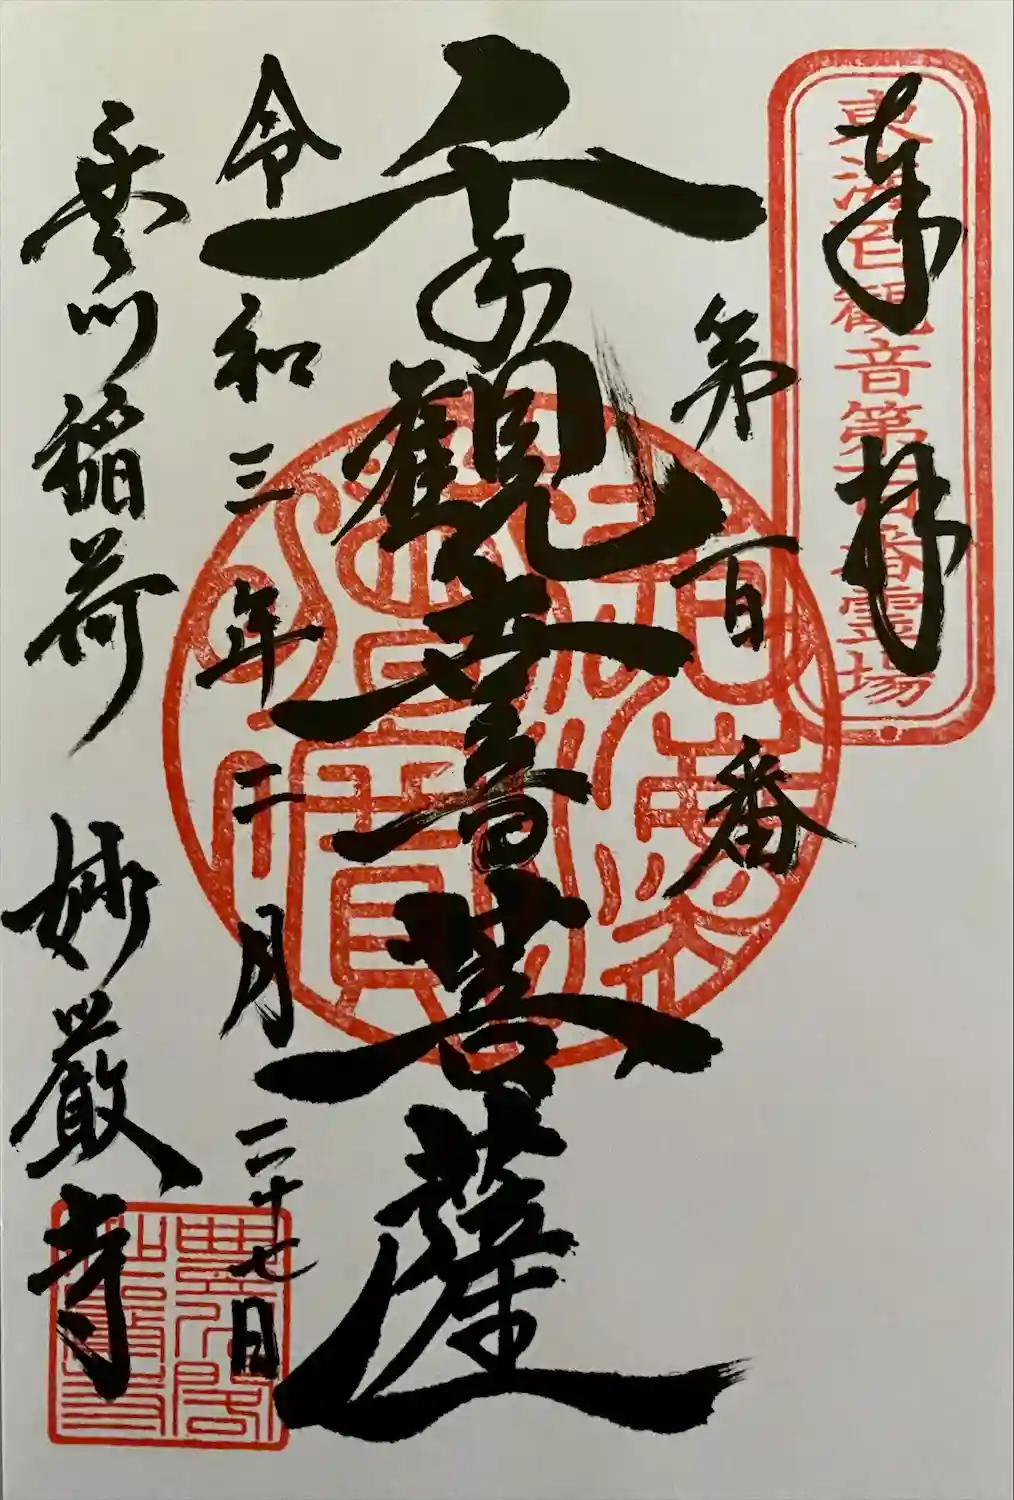 奉拝
東海百観音第百番霊場
第百番
千手觀世音菩薩
令和三年二月二十七日
豊川稲荷
妙厳寺